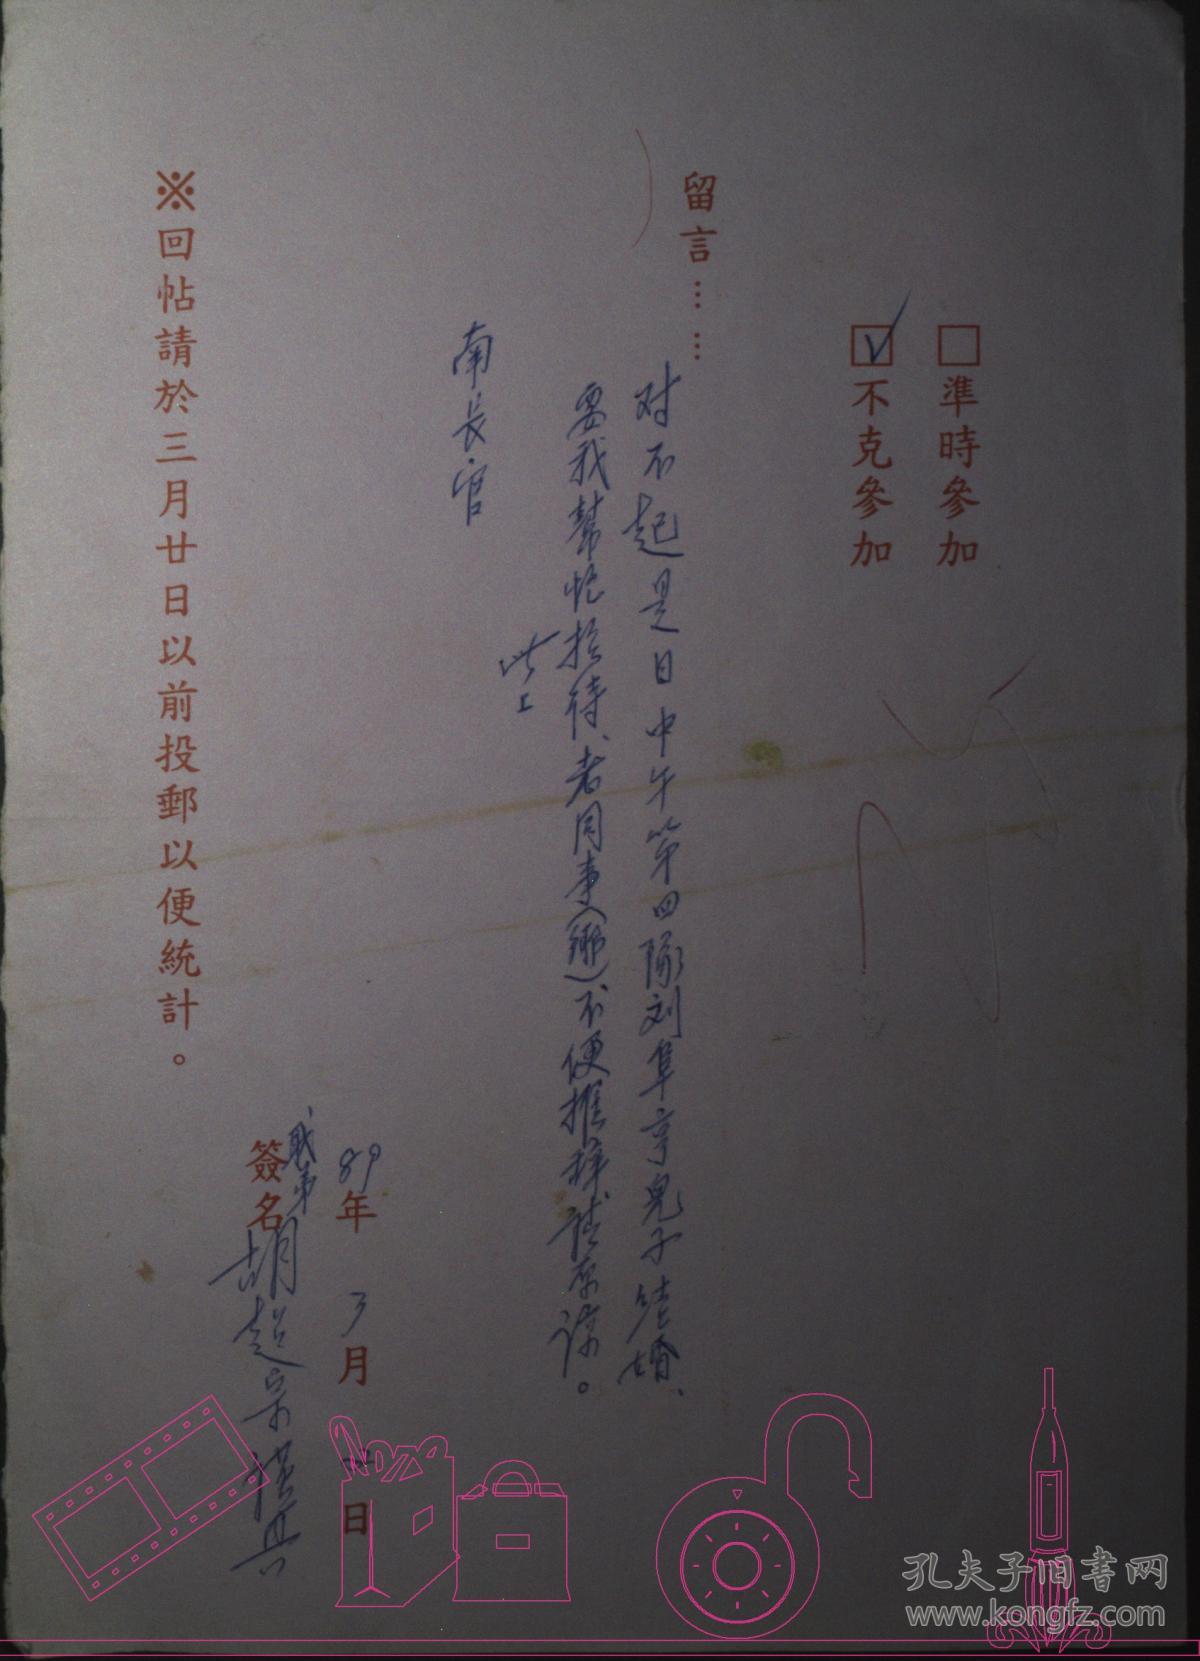 □準時參加
☑不克參加
留言……
对不起是日中午第四隊刘阜亨兒子結婚、
要我幫忙招待、老同事(鄉邊)不便推辞請原諒。
此上
南長官
89年3月廿日
簽名職弟胡超宗謹具
※回帖請於三月廿日以前投郵以便統計。
孔夫子旧书网
www.kongfz.com